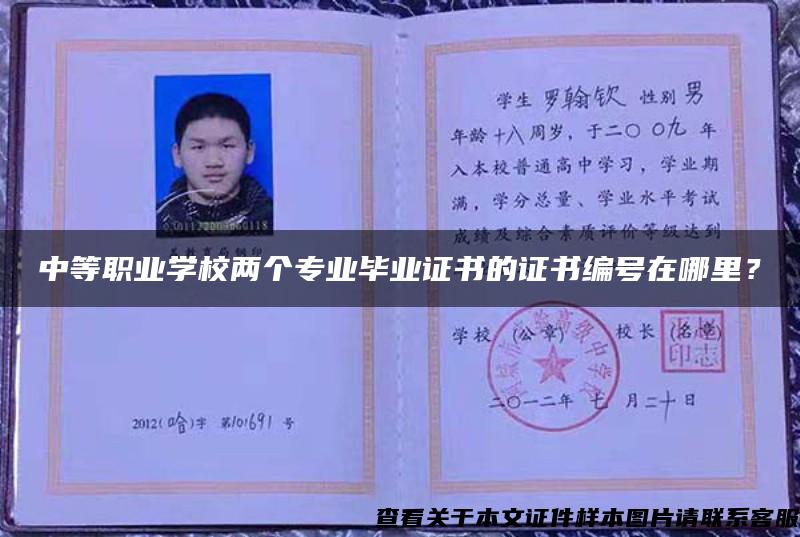 学生 罗翰钦 性别 男
年龄 十八 周岁，于二〇 〇九 年
入本校普通高中学习，学业期
满，学分总量、学业水平考试
成绩及综合素质评价等级达到
中等职业学校两个专业毕业证书的证书编号在哪里？
学校 (公章) 校长 (名章)
二〇一二年 七 月二十日
2012(哈)字 第101691 号
查看关于本文证件样本图片请联系客服